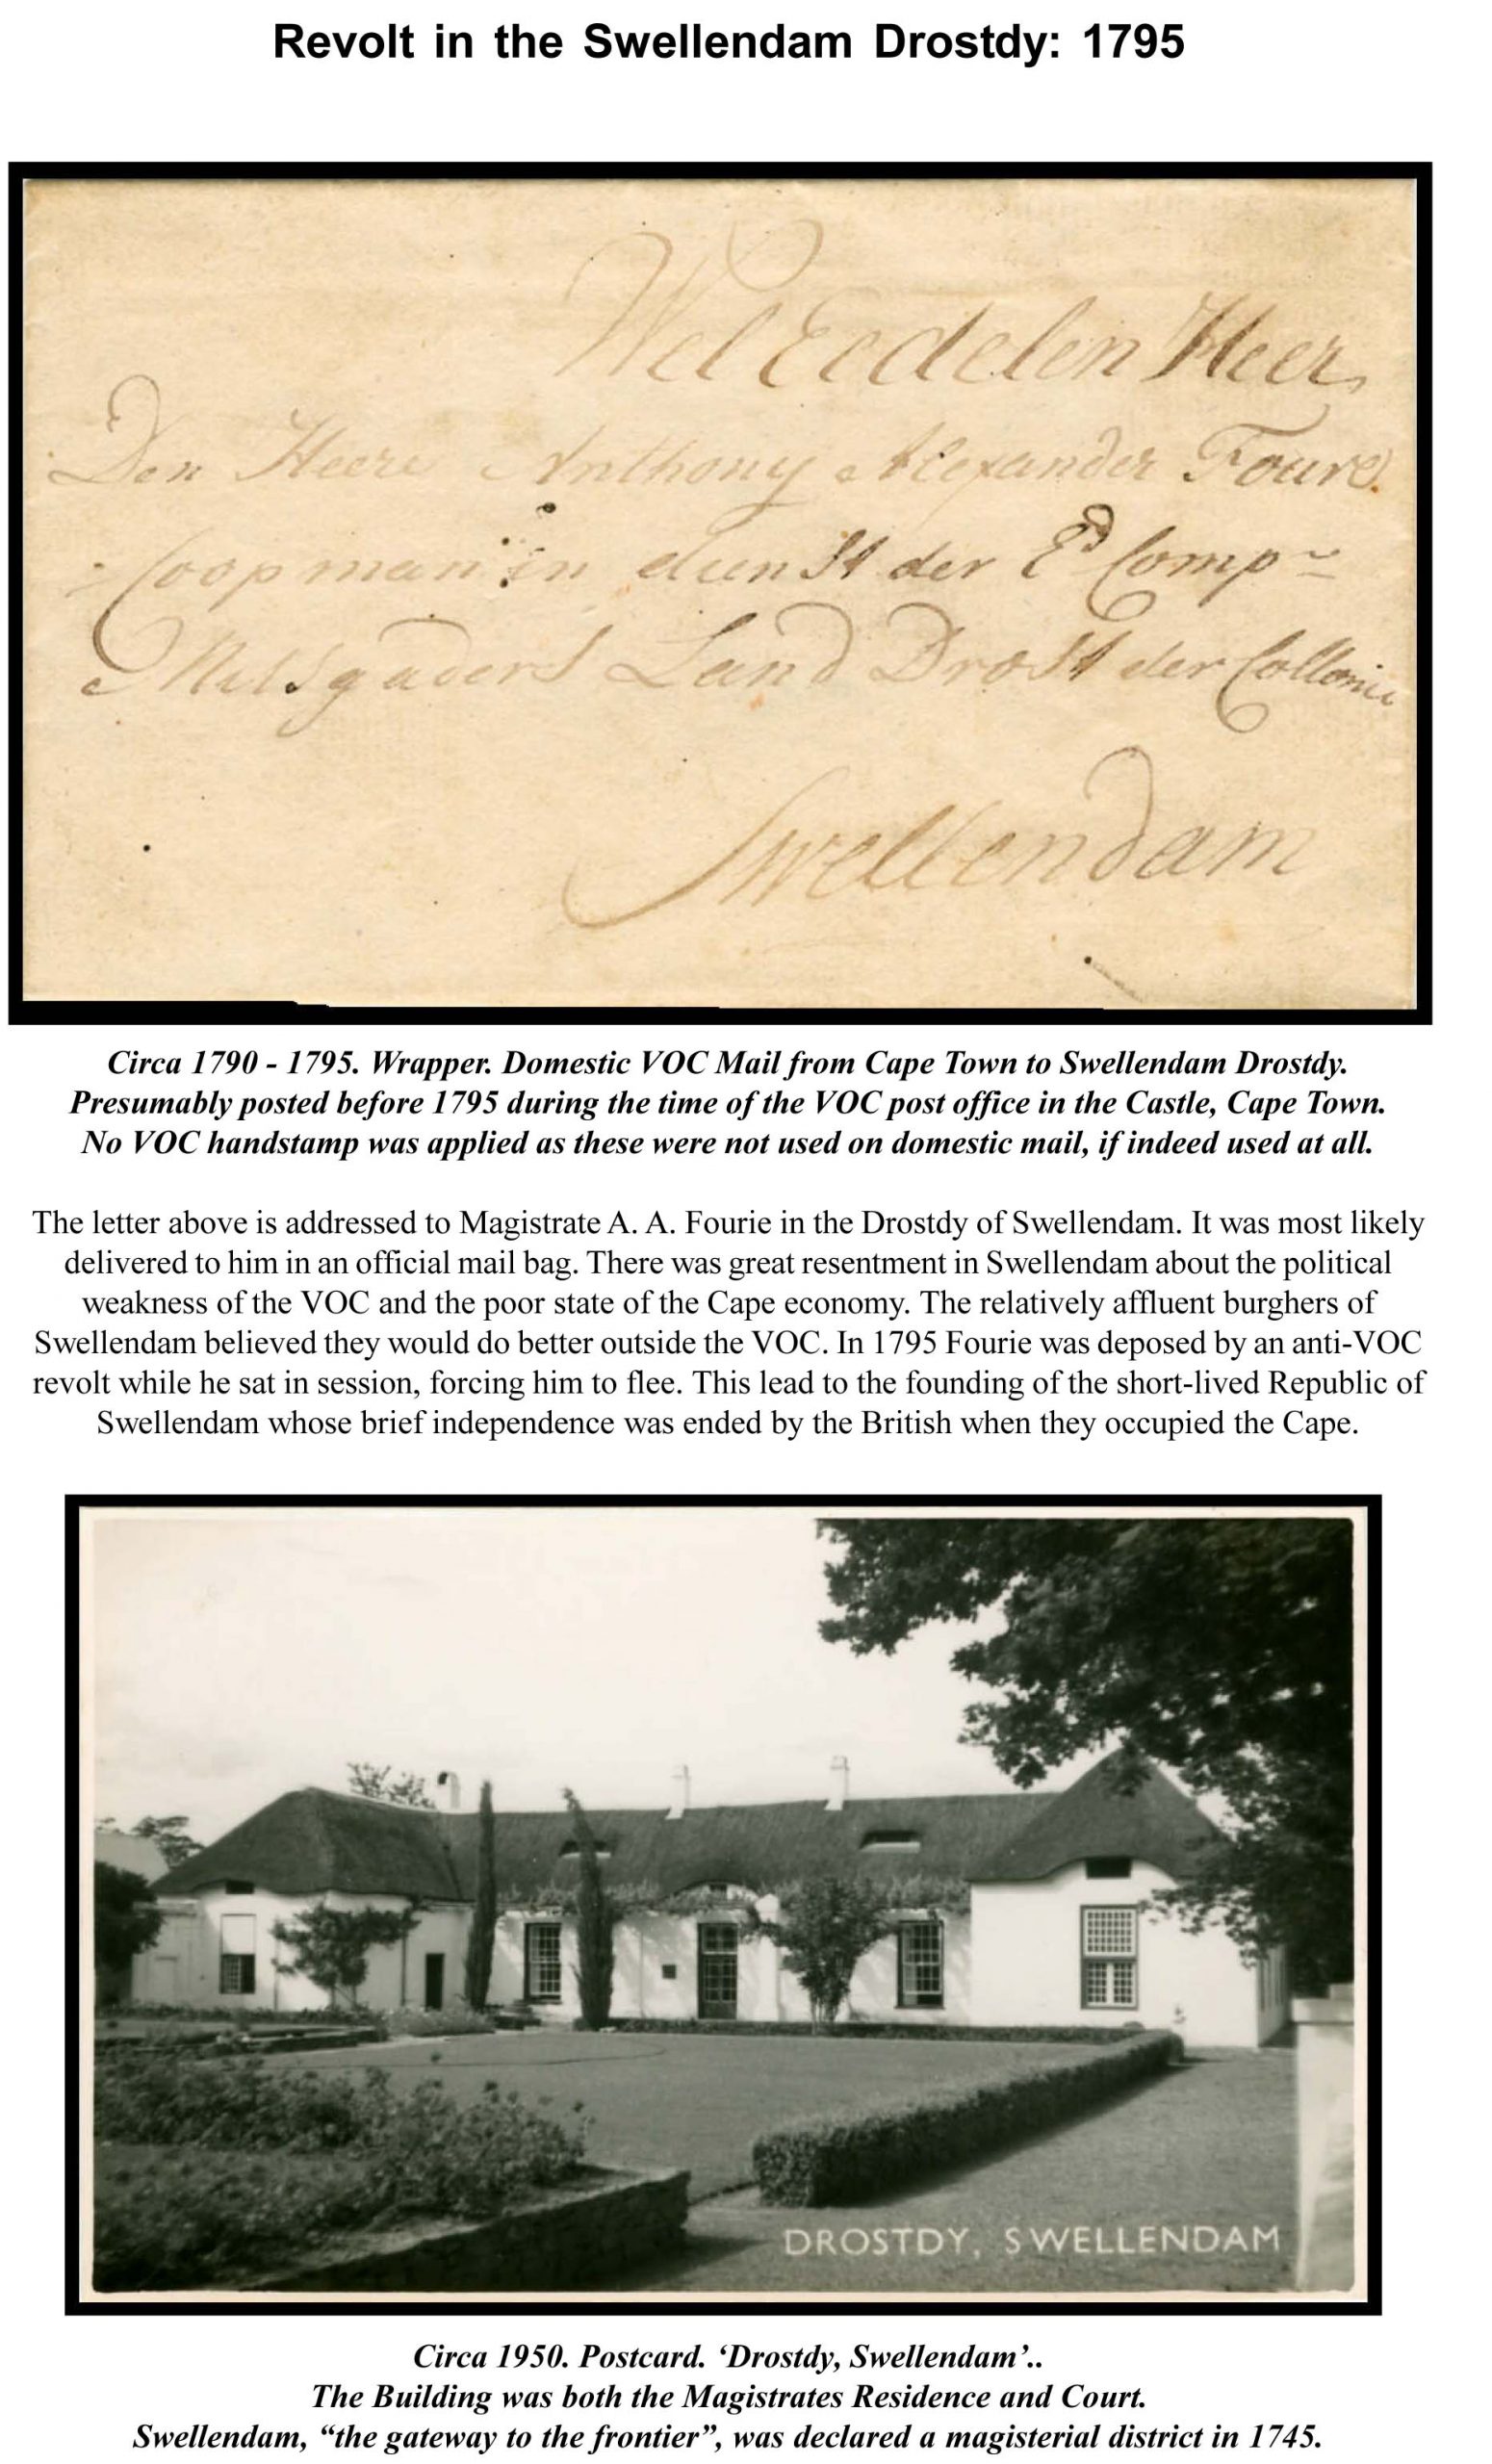 Revolt in the Swellendam Drostdy: 1795
Wel Eedelen Heer
Den Heere Anthony Alexander Foure.
Coopman in dienst der Ed Comp
Mitsgaders Land Drost der Collonie
Swellendam
Circa 1790 - 1795. Wrapper. Domestic VOC Mail from Cape Town to Swellendam Drostdy.
Presumably posted before 1795 during the time of the VOC post office in the Castle, Cape Town.
No VOC handstamp was applied as these were not used on domestic mail, if indeed used at all.
The letter above is addressed to Magistrate A. A. Fourie in the Drostdy of Swellendam. It was most likely
delivered to him in an official mail bag. There was great resentment in Swellendam about the political
weakness of the VOC and the poor state of the Cape economy. The relatively affluent burghers of
Swellendam believed they would do better outside the VOC. In 1795 Fourie was deposed by an anti-VOC
revolt while he sat in session, forcing him to flee. This lead to the founding of the short-lived Republic of
Swellendam whose brief independence was ended by the British when they occupied the Cape.
DROSTDY, SWELLENDAM
Circa 1950. Postcard. ‘Drostdy, Swellendam’..
The Building was both the Magistrates Residence and Court.
Swellendam, “the gateway to the frontier”, was declared a magisterial district in 1745.